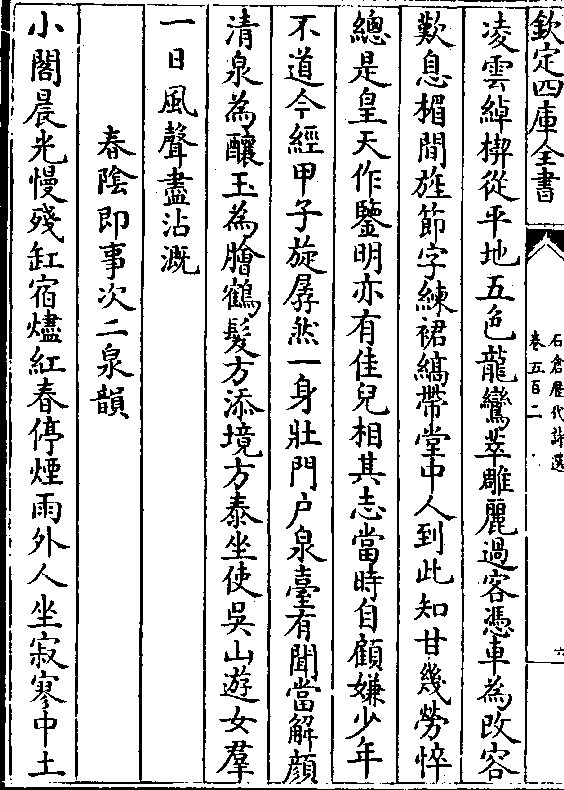 欽定四庫全書
石倉歷代詩選
卷五百二
六
凌雲綽楔從平地五色龍鸞萃雕麗過客憑車為改容
歎息楣間旌節字練裙縞帶堂中人到此知甘幾勞悴
總是皇天作鑒明亦有佳兒相其志當時自顧嫌少年
不道今經甲子旋孱然一身壯門户泉臺有聞當解顏
清泉為釀玉為膾鶴髮方添境方泰坐使吳山遊女羣
一日風聲盡沾溉
春陰即事次二泉韻
小閣晨光慢殘缸宿燼紅春停煙雨外人坐寂寥中土